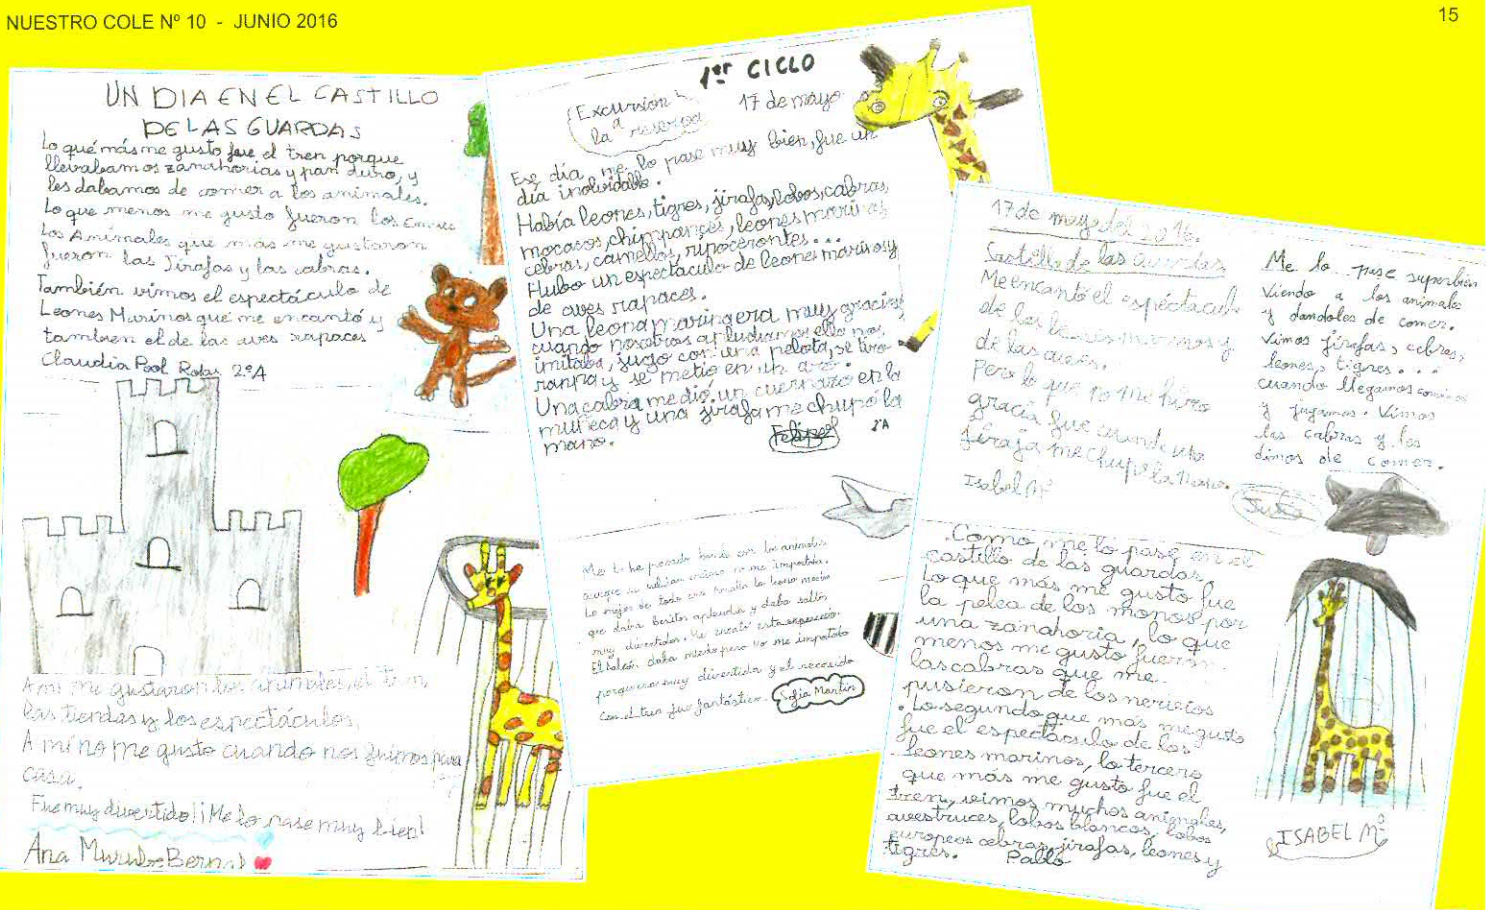 NUESTRO COLE Nº 10 - JUNIO 2016
15
UN DIA EN EL CASTILLO
DE LAS GUARDAS
Lo que más me gusto fue el tren porque
llevabamos zanahorias y pan duro, y
les dabamos de comer a los animales.
Lo que menos me gusto fueron los
Los Animales que más me gustaron
fueron las Jirafas y las cabras.
También vimos el espectáculo de
Leones Marinos que me encantó y
tambien el de las aves rapaces
Claudia Pool Rojas 2ºA
A mi me gustaron los animales, el tren,
las tiendas y los espectáculos.
A mi no me gusto cuando nos fuimos para
casa.
Fue muy divertido!¡Me lo pase muy bien!
Ana Murube Bernal
1er CICLO
Excursión a
la reserva
17 de mayo
Ese día me lo pase muy bien, fue un
día inolvidable.
Había leones, tigres, jirafas, lobos, cabras,
mocacos, chimpancés, leones marinos
cebras, camellos, rinocerontes...
Hubo un espectáculo de leones marinos y
de aves rapaces.
Una leona marina era muy graciosa
cuando nosotros aplaudiamos ella nos
imitaba, jugo con una pelota, se tiro
y se metio en un aro.
Una cabra me dió un cuernazo en la
muñeca y una jirafa me chupo la
mano.
Felipe 2ºA
Me lo he pasado bomba con los animales
aunque no me importaba.
Lo mejor de todo era la leona marina
que daba besitos aplaudia y daba saltos
muy divertidos. Me encantó esta
El halcón daba miedo pero no me importaba
porque era muy divertida y el recorrido
con el tren fue fantástico. Sofia Martín
17 de mayo del 2016.
Castillo de las Guardas
Me encantó el espectaculo
de los leones marinos y
de las aves.
Pero lo que no me hizo
gracia fue cuando una
jirafa me chupó la mano.
Isabel Mª
Me lo pase superbien
Viendo a los animales
y dandoles de comer.
Vimos jirafas, cebras,
leones, tigres...
cuando llegamos comimos
y jugamos. Vimos
las cabras y les
dimos de comer.
Como me lo pasé en el
castillo de las guardas
Lo que más me gusto fue
la pelea de los monos por
una zanahoria, lo que
menos me gusto fueron
las cabras que me
pusieron de los nervios
. Lo segundo que más me gusto
fue el espectáculo de los
leones marinos, lo tercero
que más me gusto fue el
tren, vimos muchos animales,
avestruces, lobos blancos, lobos
europeos cebras, jirafas, leones y
tigres. Pablo
ISABEL Mª